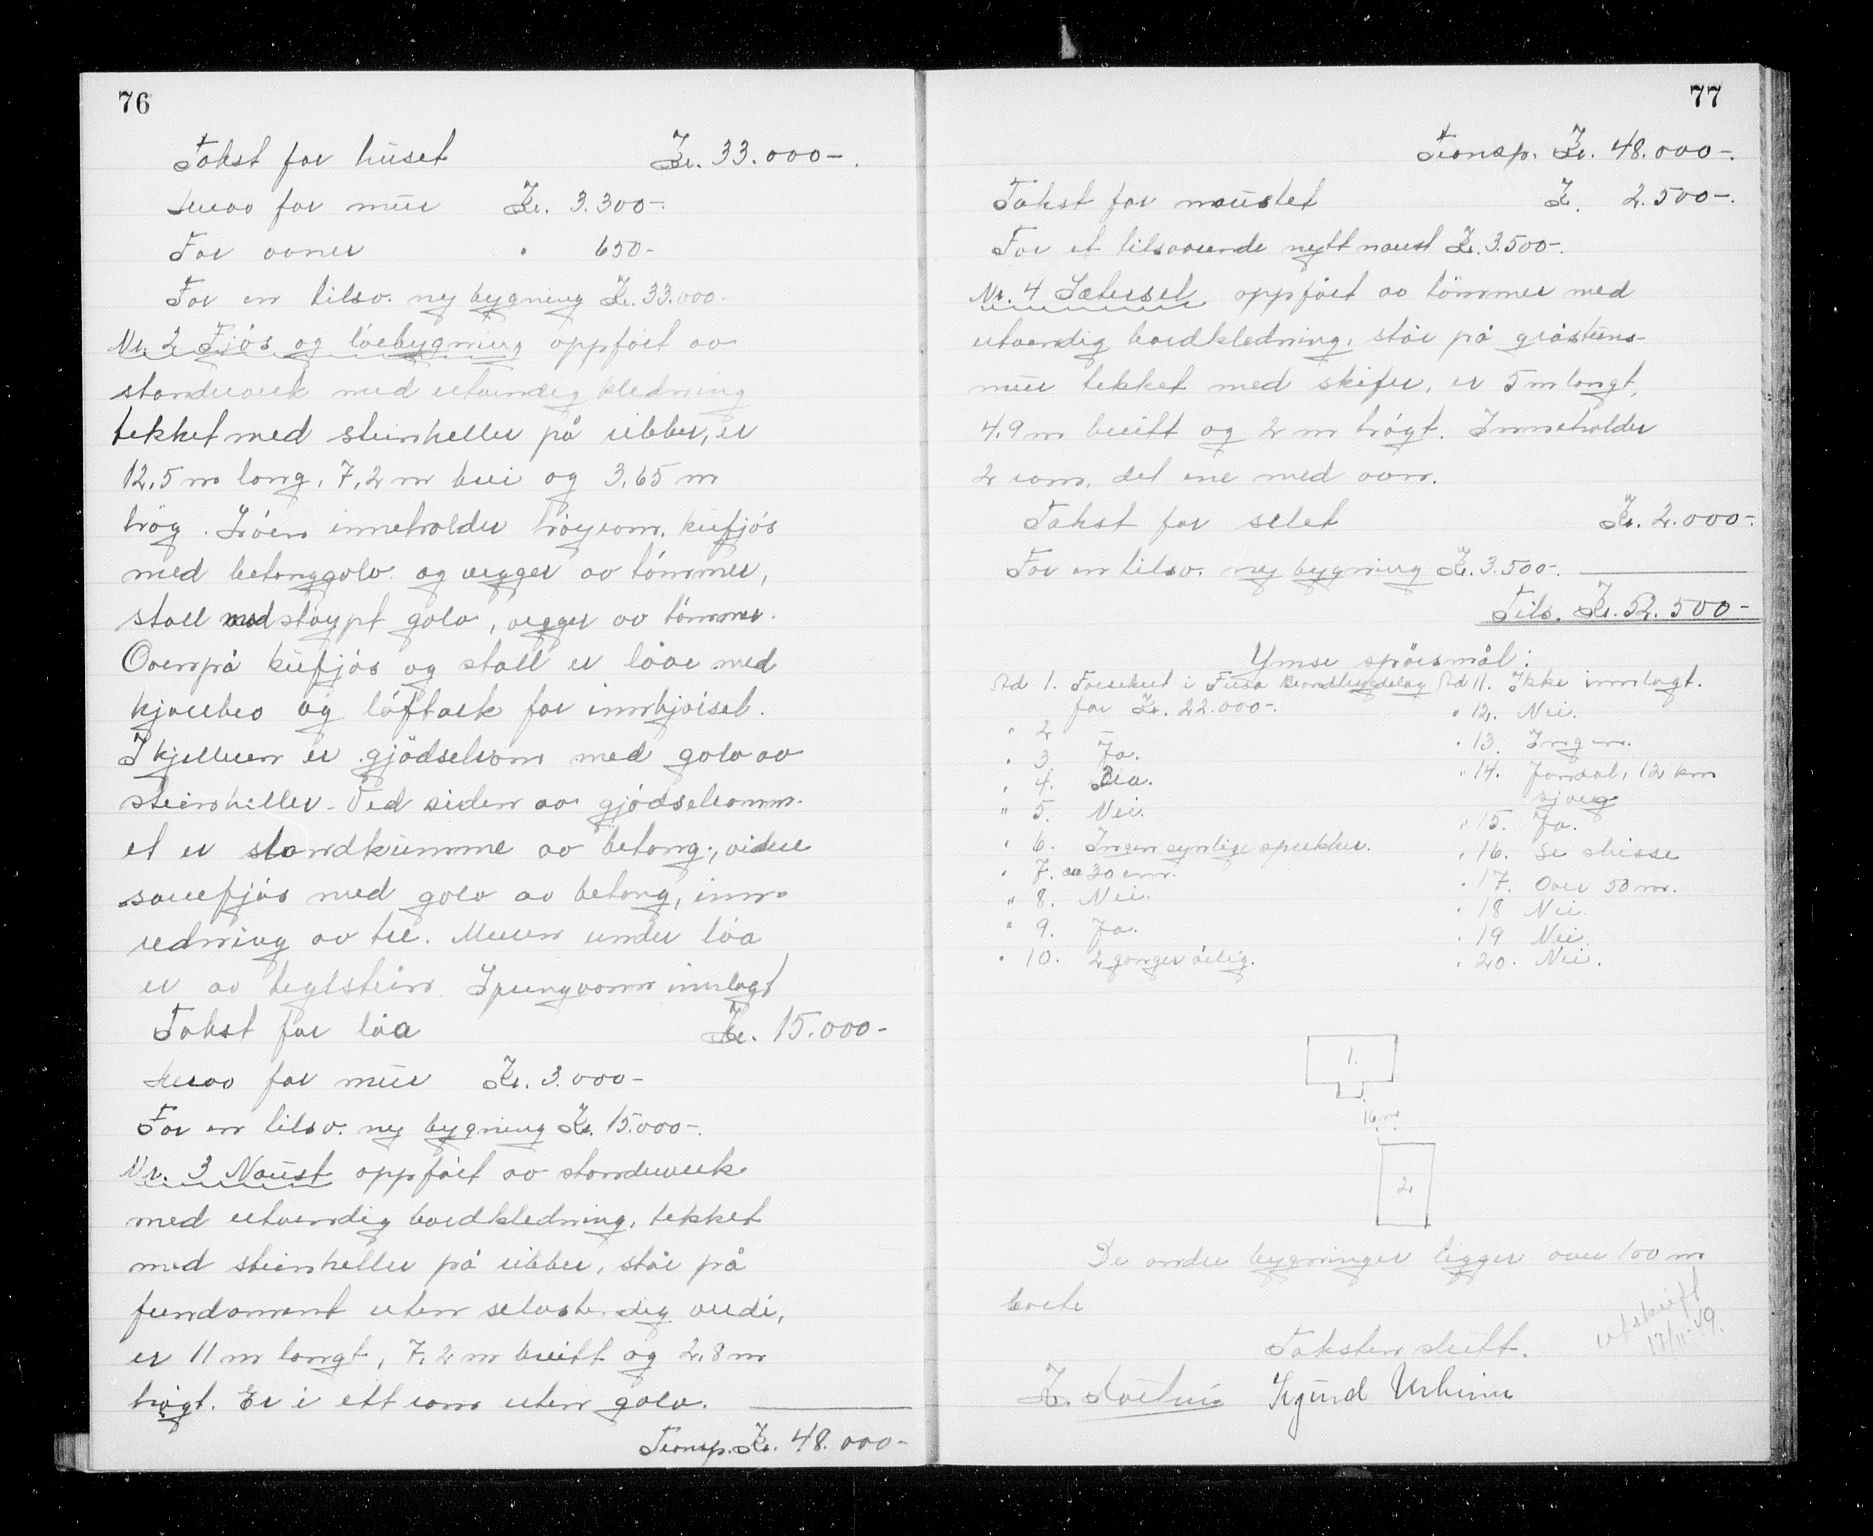 76
Takst for huset Kr. 33.000-.
Herav for mur Kr. 3.300-.
For ovner " 650-
For en tilsv. ny bygning Kr. 33.000-
Nr. 2 Fjös og löebygning oppfört av
standerverk med utvendig kledning
tekket med steinheller på ribber, er
12,5 m lang, 7,2 m brei og 3,65 m
hög. Löen inneholder höyrom, kufjös
med betonggolv og vegger av tömmer,
stall med stöypt golv, vegger av tömmer.
Ovenpå kufjös og stall er låve med
kjørebro og löftark for innkjörsel.
I kjelleren er gjödselrom med golv av
steinheller. Ved siden av gjödselromm.
et er landkumme av betong, videre
sauefjös med golv av betong, inn-
redning av tre. Muren under löa
er av teglstein. Springvann innlagt
Takst for löa Kr. 15.000-
Herav for mur Kr. 3.000-
For en tilsv. ny bygning Kr. 15.000-.
Nr. 3 Naust oppfört av standerverk
med utvendig bordkledning, tekket
med steinheller på ribber, står på
fundament uten selvstendig verdi,
er 11 m langt, 7,2 m breitt og 2,8 m
högt. Er i ett rom uten golv.
Transp. Kr. 48.000-
77
Transp. Kr. 48.000-.
Takst for naustet Kr. 2.500-.
For et tilsvarende nytt naust Kr. 3.500-.
Nr. 4 Sætersel oppfört av tömmer med
utvendig bordkledning, står på gråsteins-
mur tekket med skifer, er 5 m langt,
4,9 m breitt og 2 m högt. Inneholder
2 rom, det ene med ovn.
Takst for selet Kr. 2.000-.
For en tilsv. ny bygning Kr. 3.500-.
Tils. Kr. 52.500-
Ymse spörsmål:
Ad 1. Forsikret i Fusa Brandtrygdelag
for Kr. 22.000-.
" 2 –
" 3. Ja.
" 4. Bra.
" 5. Nei.
" 6. Ingen synlige sprekker.
" 7. ca 20 cm.
" 8. Nei.
" 9. Ja.
" 10. 2 ganger årlig.
Ad 11. Ikke innlagt.
" 12. Nei.
" 13. Ingen.
" 14. Jondal, 12 km
sjøveg
" 15. Ja.
" 16. Se skisse
" 17. Over 50 m.
" 18 Nei.
" 19 Nei.
" 20. Nei.
1.
16 m
2
De andre bygninger ligger over 100 m
borte
Taksten slutt.
Utskrift
17/11-49.
Sigurd